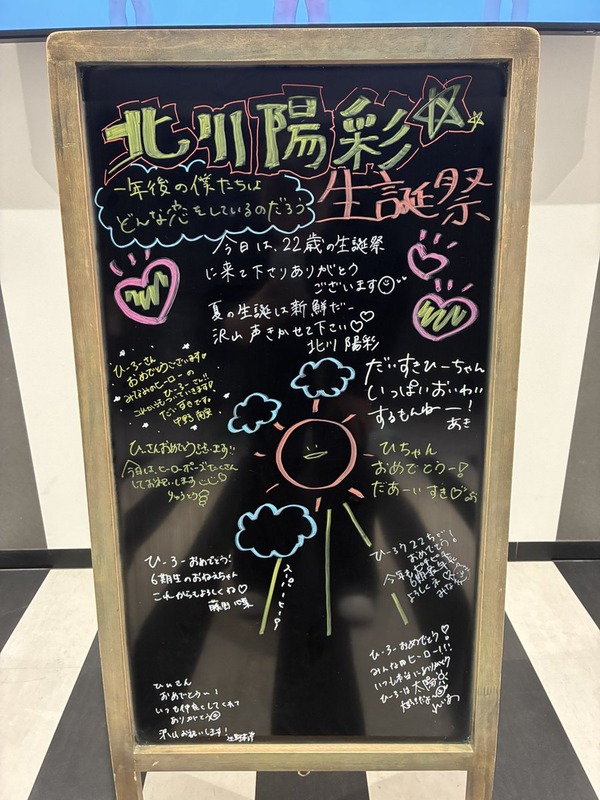 北川陽彩
生誕祭
一年後の僕たちは
どんな恋をしているのだろう
今日は、22歳の生誕祭
に来て下さりありがとう
ございます
夏の生誕は新鮮だー
沢山声きかせて下さい♡♡
北川 陽彩
ひーろーさん
おめでとうございます!
みなみのヒーローの
ひーろーさん!!
これからもついていきます!
だいすきです。
中野
だいすきひーちゃん
いっぱいおいわい
するもんねー!
あき
ひーさんおめでとうございます!!
今日は、ヒーローポーズたくさん
してお祝いします
りゅうとう
ひちゃん
おめでとうー!
だぁーいすき♡
ひーろーおめでとう!
6期生のおねえちゃん
これからもよろしくね♡
藤田
スーパーヒーロー
ひーろー22さい!
おめでとう!
今年も
よろしくネ
ひぃさん
おめでとう〜!
いつも仲良くしてくれて
ありがとう
沢山お祝いします!
ひーろーおめでとう♡
みんなのヒーロー!!!
いつも本当にありがとう
ひーろーは太陽
大好きだよ〜